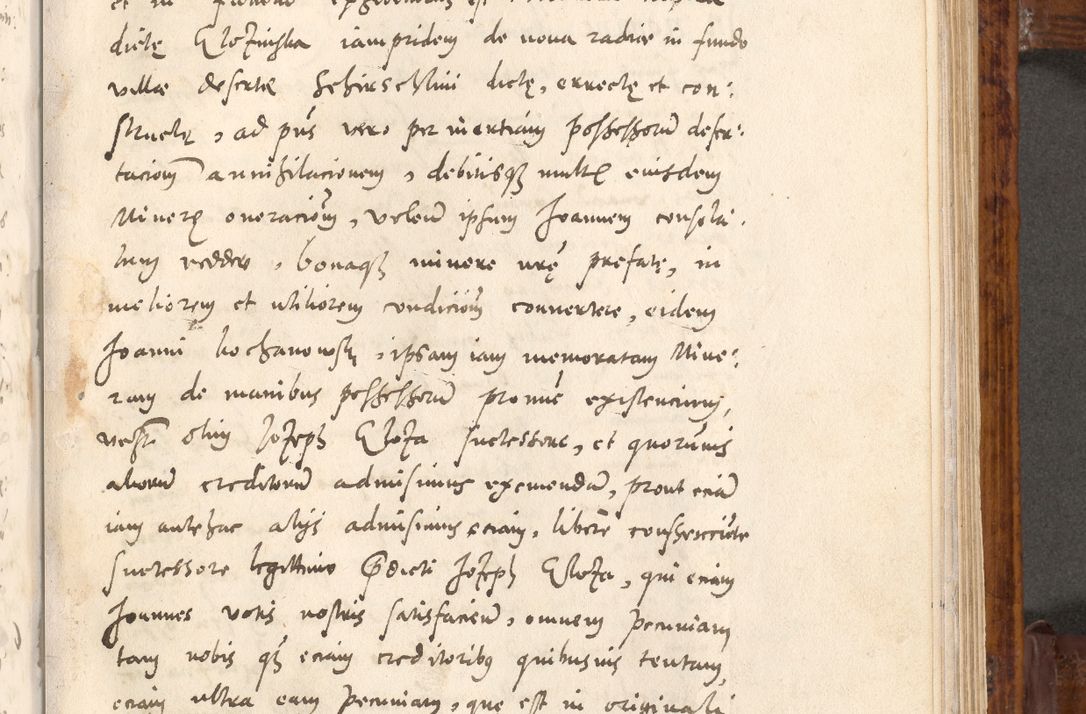 dictę Glozinska iampridem de noua radice in fundo
villae desertae Schirschlini dictę, errectę et con:
structę, ad pns vero per inertiam possessorũ deser:
tacionem annihilacionem, debitisqȝ multis eiusdem
Minerę oneracionem, volens ipsum Joannem consola:
tum reddere, bonaqȝ minere nrę prefatę, in
meliorem et utiliorem condicionem convertere, eidem
Joanni kochanowsky, ipsam iam memoratam Mine:
ram de manibus possessorũ pro nunc existencium,
olim Jozeph Gloza successore, et quorumuis
aliorũ creditorũ admisimus exemendã, prout eciã
iam antehac alijs admisimus eciam, libere consenciente
successore legittimo prædicti Jozeph Gloza, qui eciam
Joannes votis nostris satisfaciens, omnem pecuniam
tam nobis qȝ eciam creditoribus quibusuis tentam,
eciam ultra eam pecuniam, que est in originali